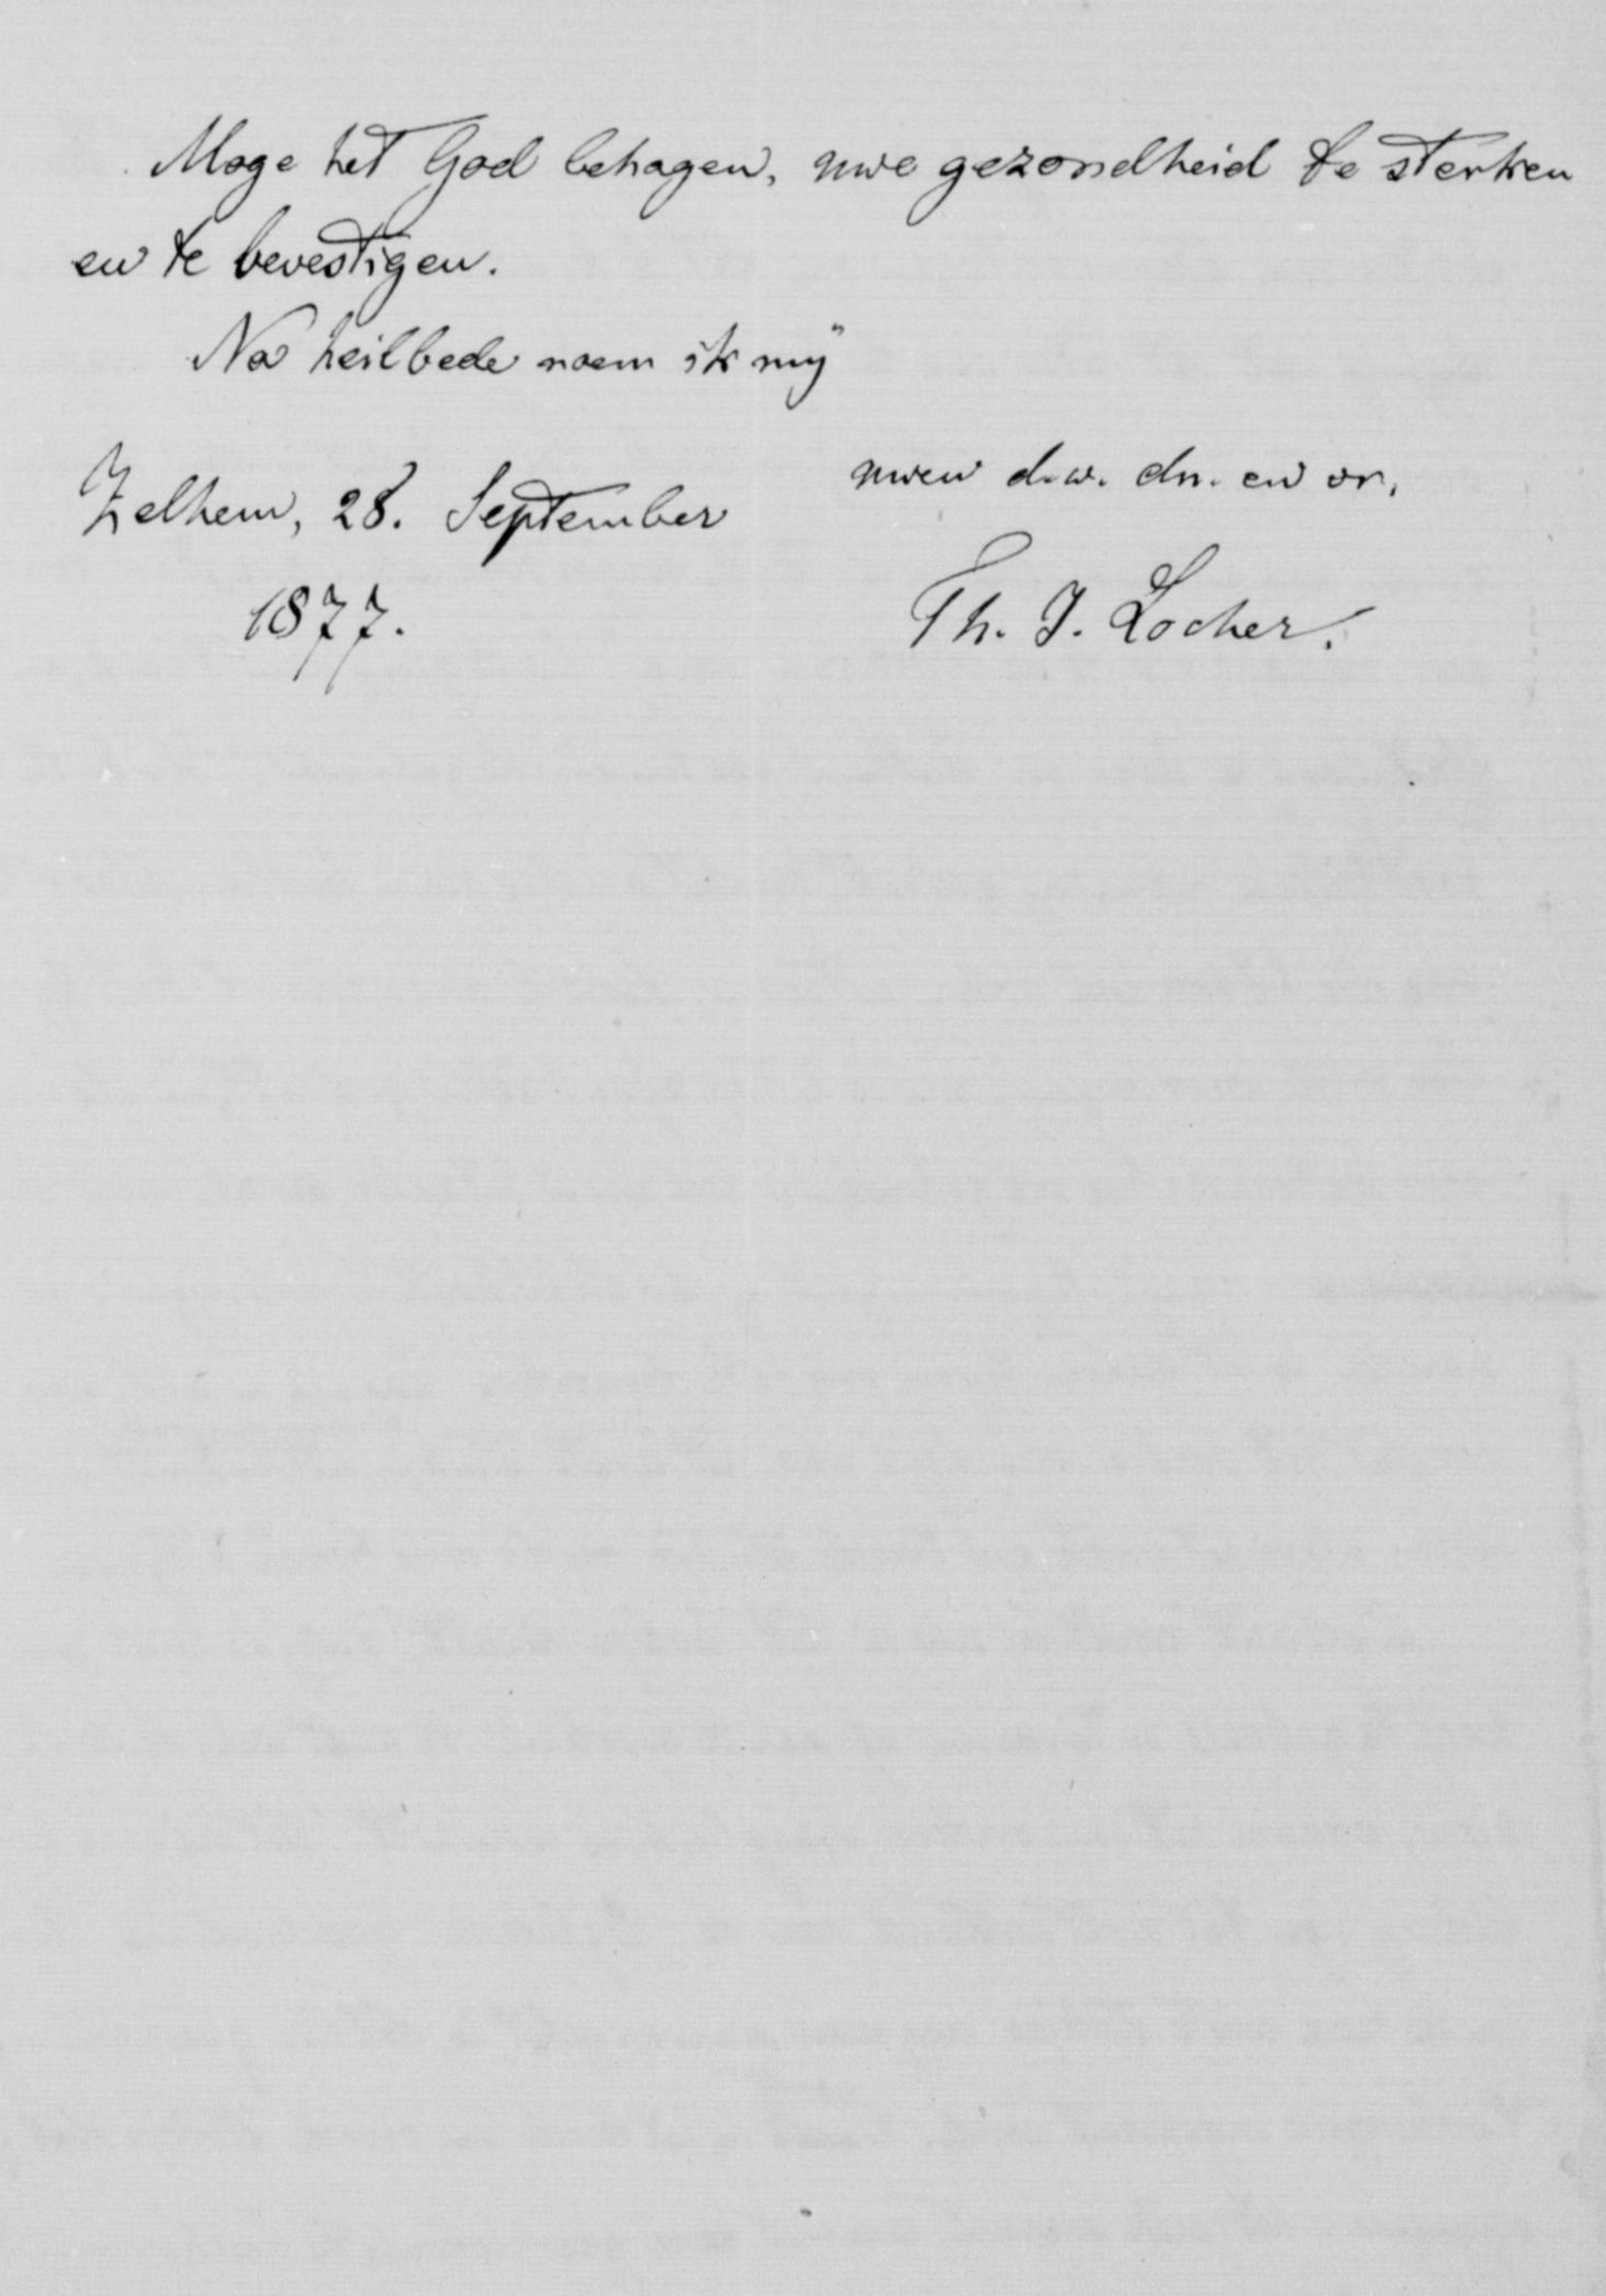 Moge het God behagen, uwe gezondheid te sterken
en te bevestigen.
Na heilbede noem ik mij
uwen d.w. dn. en vr.
Zelhem, 28. September
1877.
Th. J. Locher.